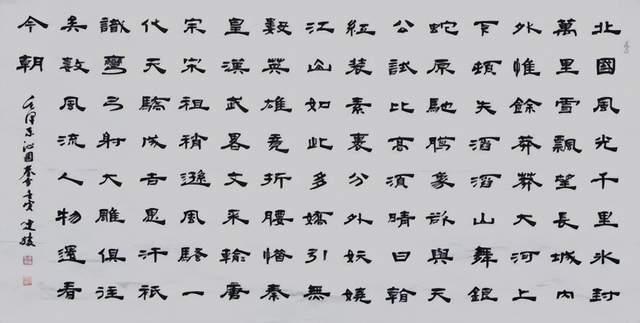 北國風光千里冰封
萬里雪飄望長城內
外惟餘莽莽大河上
下頓失滔滔山舞銀
蛇原馳臘象欲與天
公試比高須晴日看
紅裝素裹分外妖嬈
江山如此多嬌引無
數英雄競折腰惜秦
皇漢武畧文采輸唐
宗宋祖稍遜風騷一
代天驕成吉思汗祇
識彎弓射大雕俱往
矣數風流人物還看
今朝
毛澤東沁園春雪壬寅建